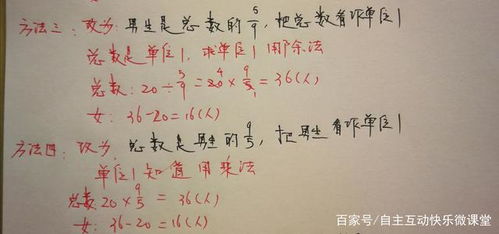 方法三：改为：男生是总数的5/9，把总数看作单位1
总数是单位1，求单位1用除法
总数：20÷5/9=20×9/5=36(人)
女：36-20=16(人)
方法四：改为：总数是男生的9/5，把男生看作单位1
单位1知道用乘法
总数20×9/5=36(人)
女：36-20=16(人)
百家号/自主互动快乐微课堂